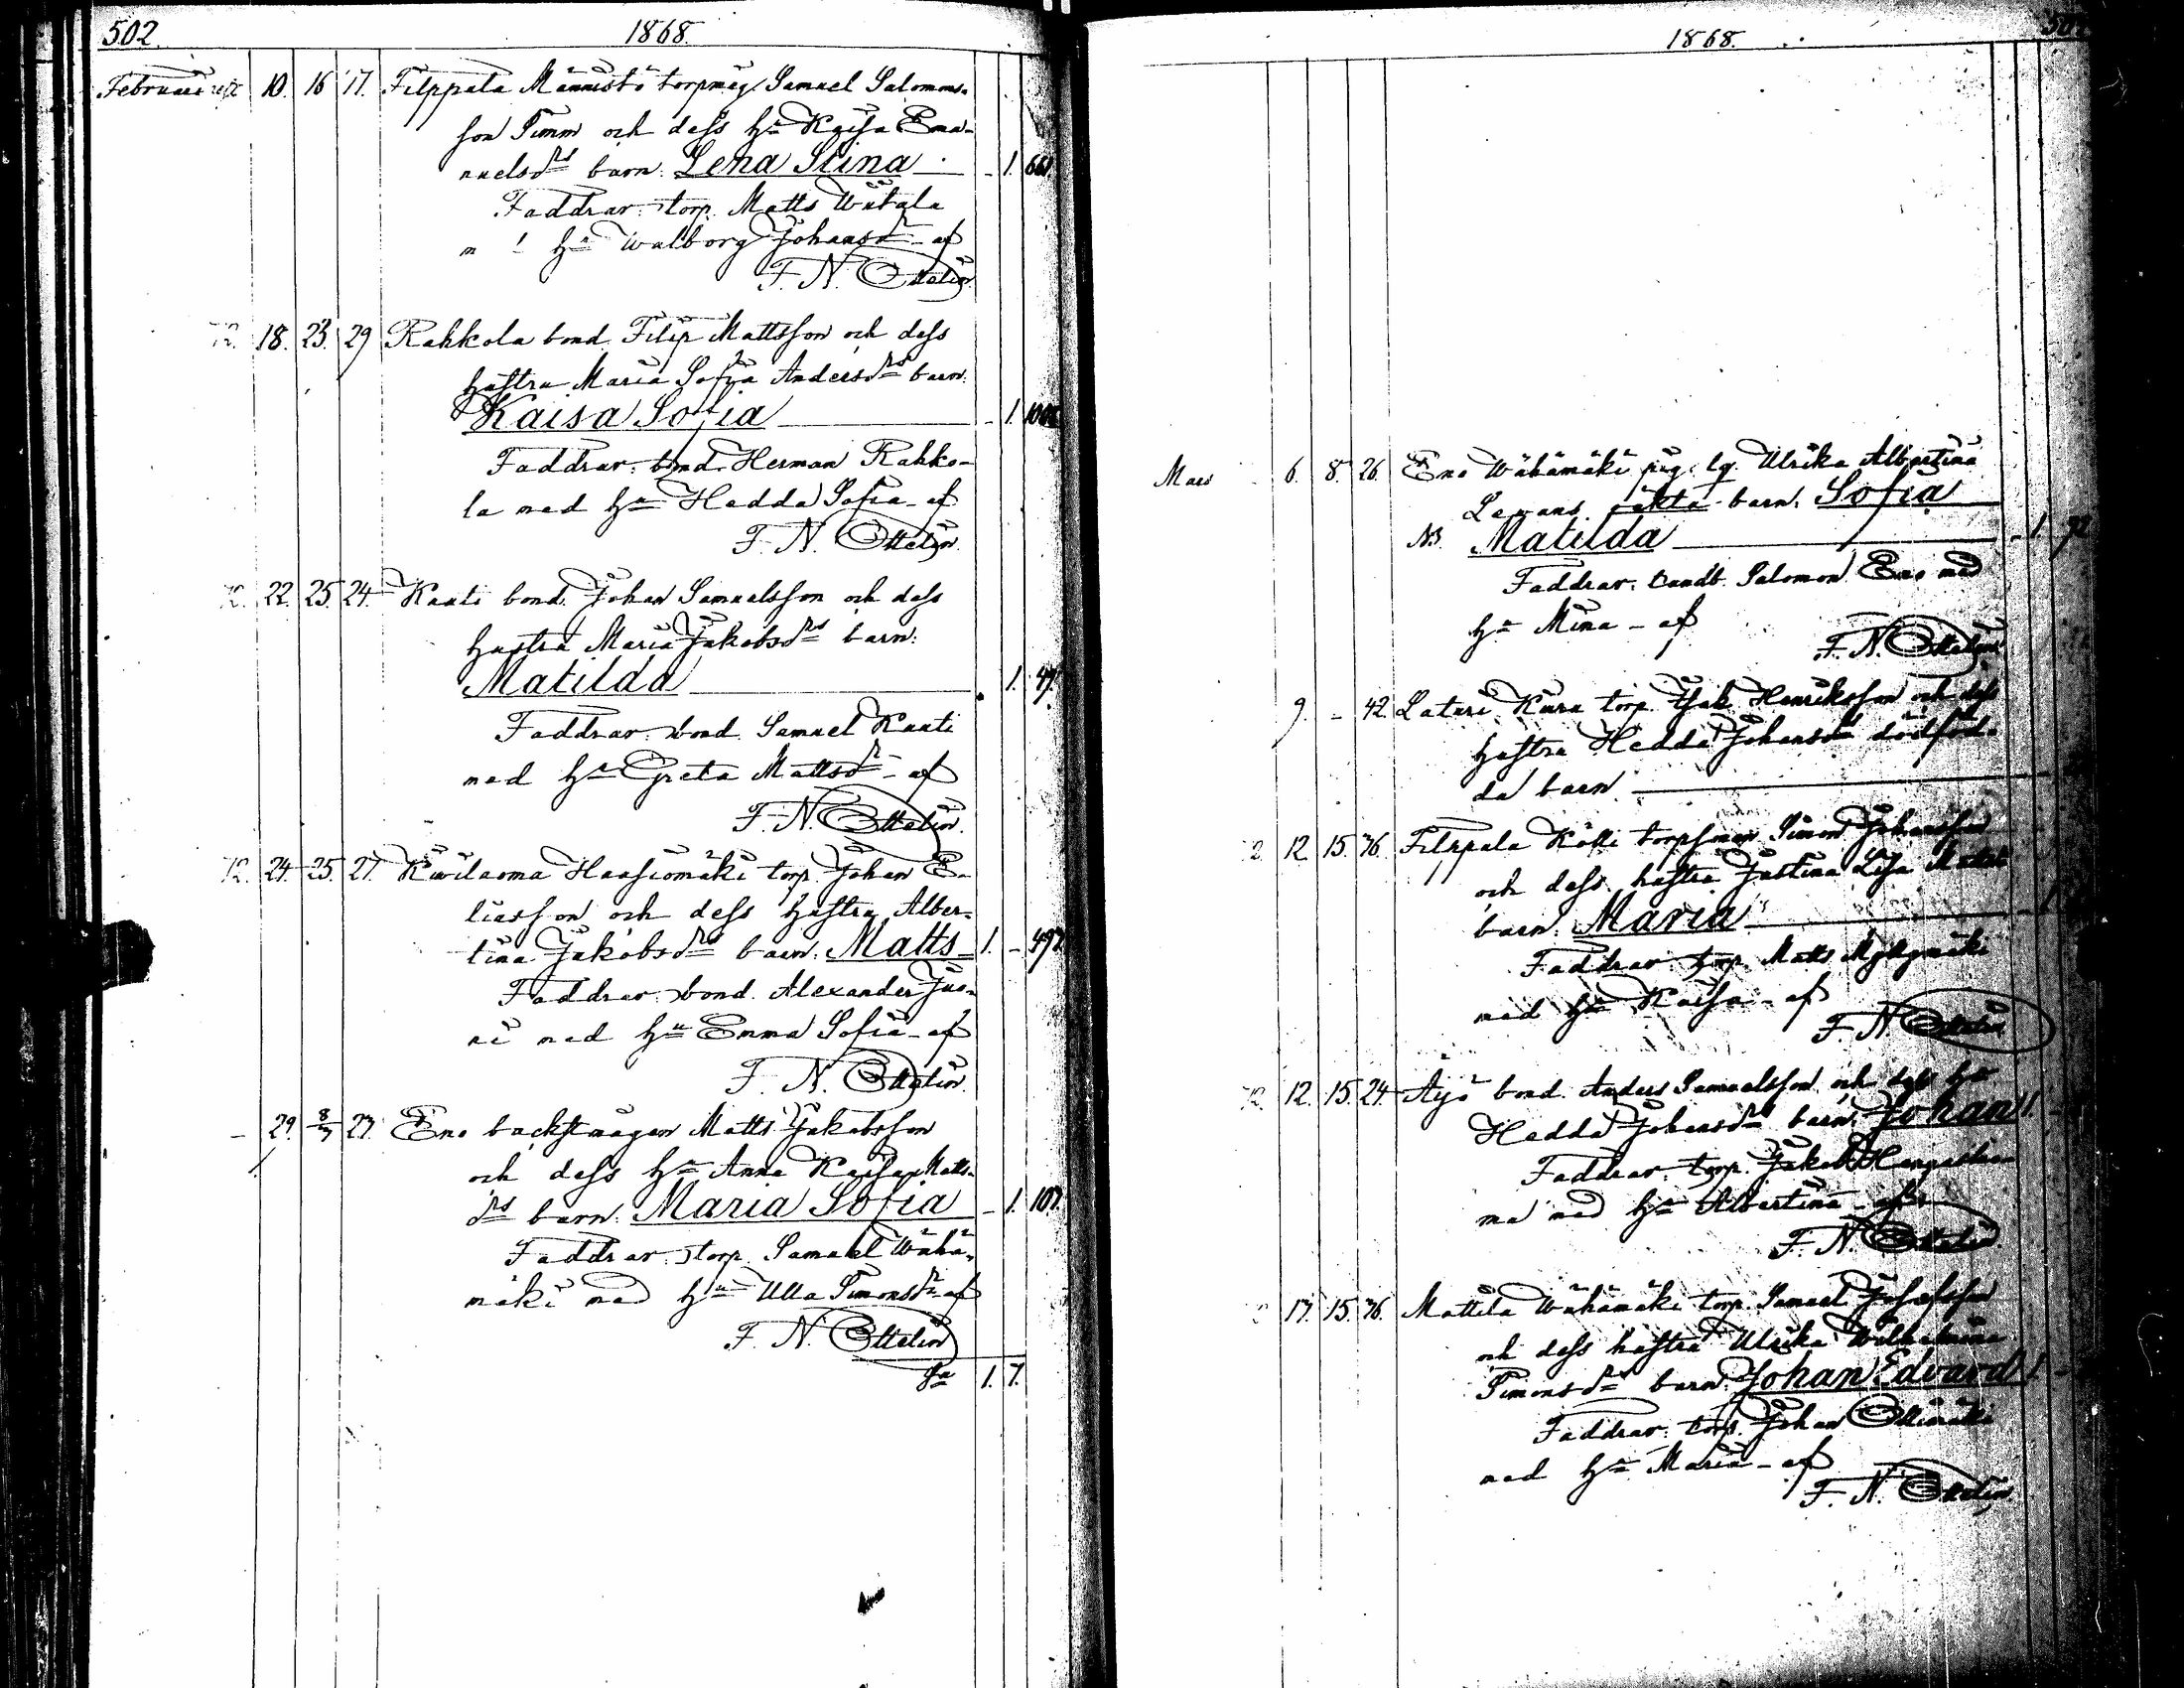 502. 1868.
Februari 10. 16 17. Filppula Männistö torpmåg Samuel Salomons-
son Timm och dess hu Kaisa Ema-
nuelsdrs barn: Lena Stina - 1. 661.
Faddrar: torp. Matts
m hu Walborg Johansdr - af
F. N. Ottelin.
72. 18. 23. 29 Rahkola bond. Filip Mattsson och dess
hustru Maria Sofia Andersdrs barn:
Kaisa Sofia - 1.
Faddrar: bond. Herman Rahko-
la med hu Hedda Sofia - af
F. N. Ottelin.
72. 22. 25. 24. Kauti bond. Johan Samuelsson och dess
hustru Maria Jakobsdrs barn:
Matilda 1. 47.
Faddrar: bond. Samuel Kauti
med hu Greta Mattsdr - af
F. N. Ottelin.
72. 24. 25. 27. Kiviloma Haasiomäki torp. Johan E-
liasson och dess hustru Alber-
tina Jakobsdrs barn: Matts 1. - 497
Faddrar: bond. Alexander Jus-
si med hu Emma Sofia - af
F. N. Ottelin.
- 29. 8/3 27. Eno backstugan Matts Jakobsson
och dess hu Anna Kaisa Matts-
drs barn: Maria Sofia - 1. 107.
Faddrar: torp. Samuel Wähä-
mäki med hu Ulla Simonsdr af
F. N. Ottelin
Sa 1. 7.
1868.
Mars 6. 8. 26. Eno Wähämäki pig. lq. Ulrika Albertina
oäkta barn: Sofia
NB. Matilda - 1. 72
Faddrar: landb. Salomon Eno med
hu Mina - af
F. N. Ottelin
9. - 42. Laturi Kiuru torp. Isak Henriksson och dess
hustru Hedda Johansdrs dödföd-
da barn
12. 15. 36. Filppula Kölli torpsman Simon Johansson
och dess hustru Justina Lisa
barn: Maria
Faddrar: torp. Matts Myllymäki
med hu Kaisa - af
F. N. Ottelin
72. 12. 15. 24. Äijö bond. Anders Samuelsson och dess hu
Hedda Johansdrs barn: Johan 1.
Faddrar: torp. Jakob
ma med hu Albertina - af
F. N. Ottelin
17. 15. 36. Mattila Wähämäki torp. Samuel Josefsson
och dess hustru Ulrika Wilhelmina
Simonsdrs barn: Johan Edvard 1.
Faddrar: torp. Johan
med hu Maria - af
F. N. Ottelin